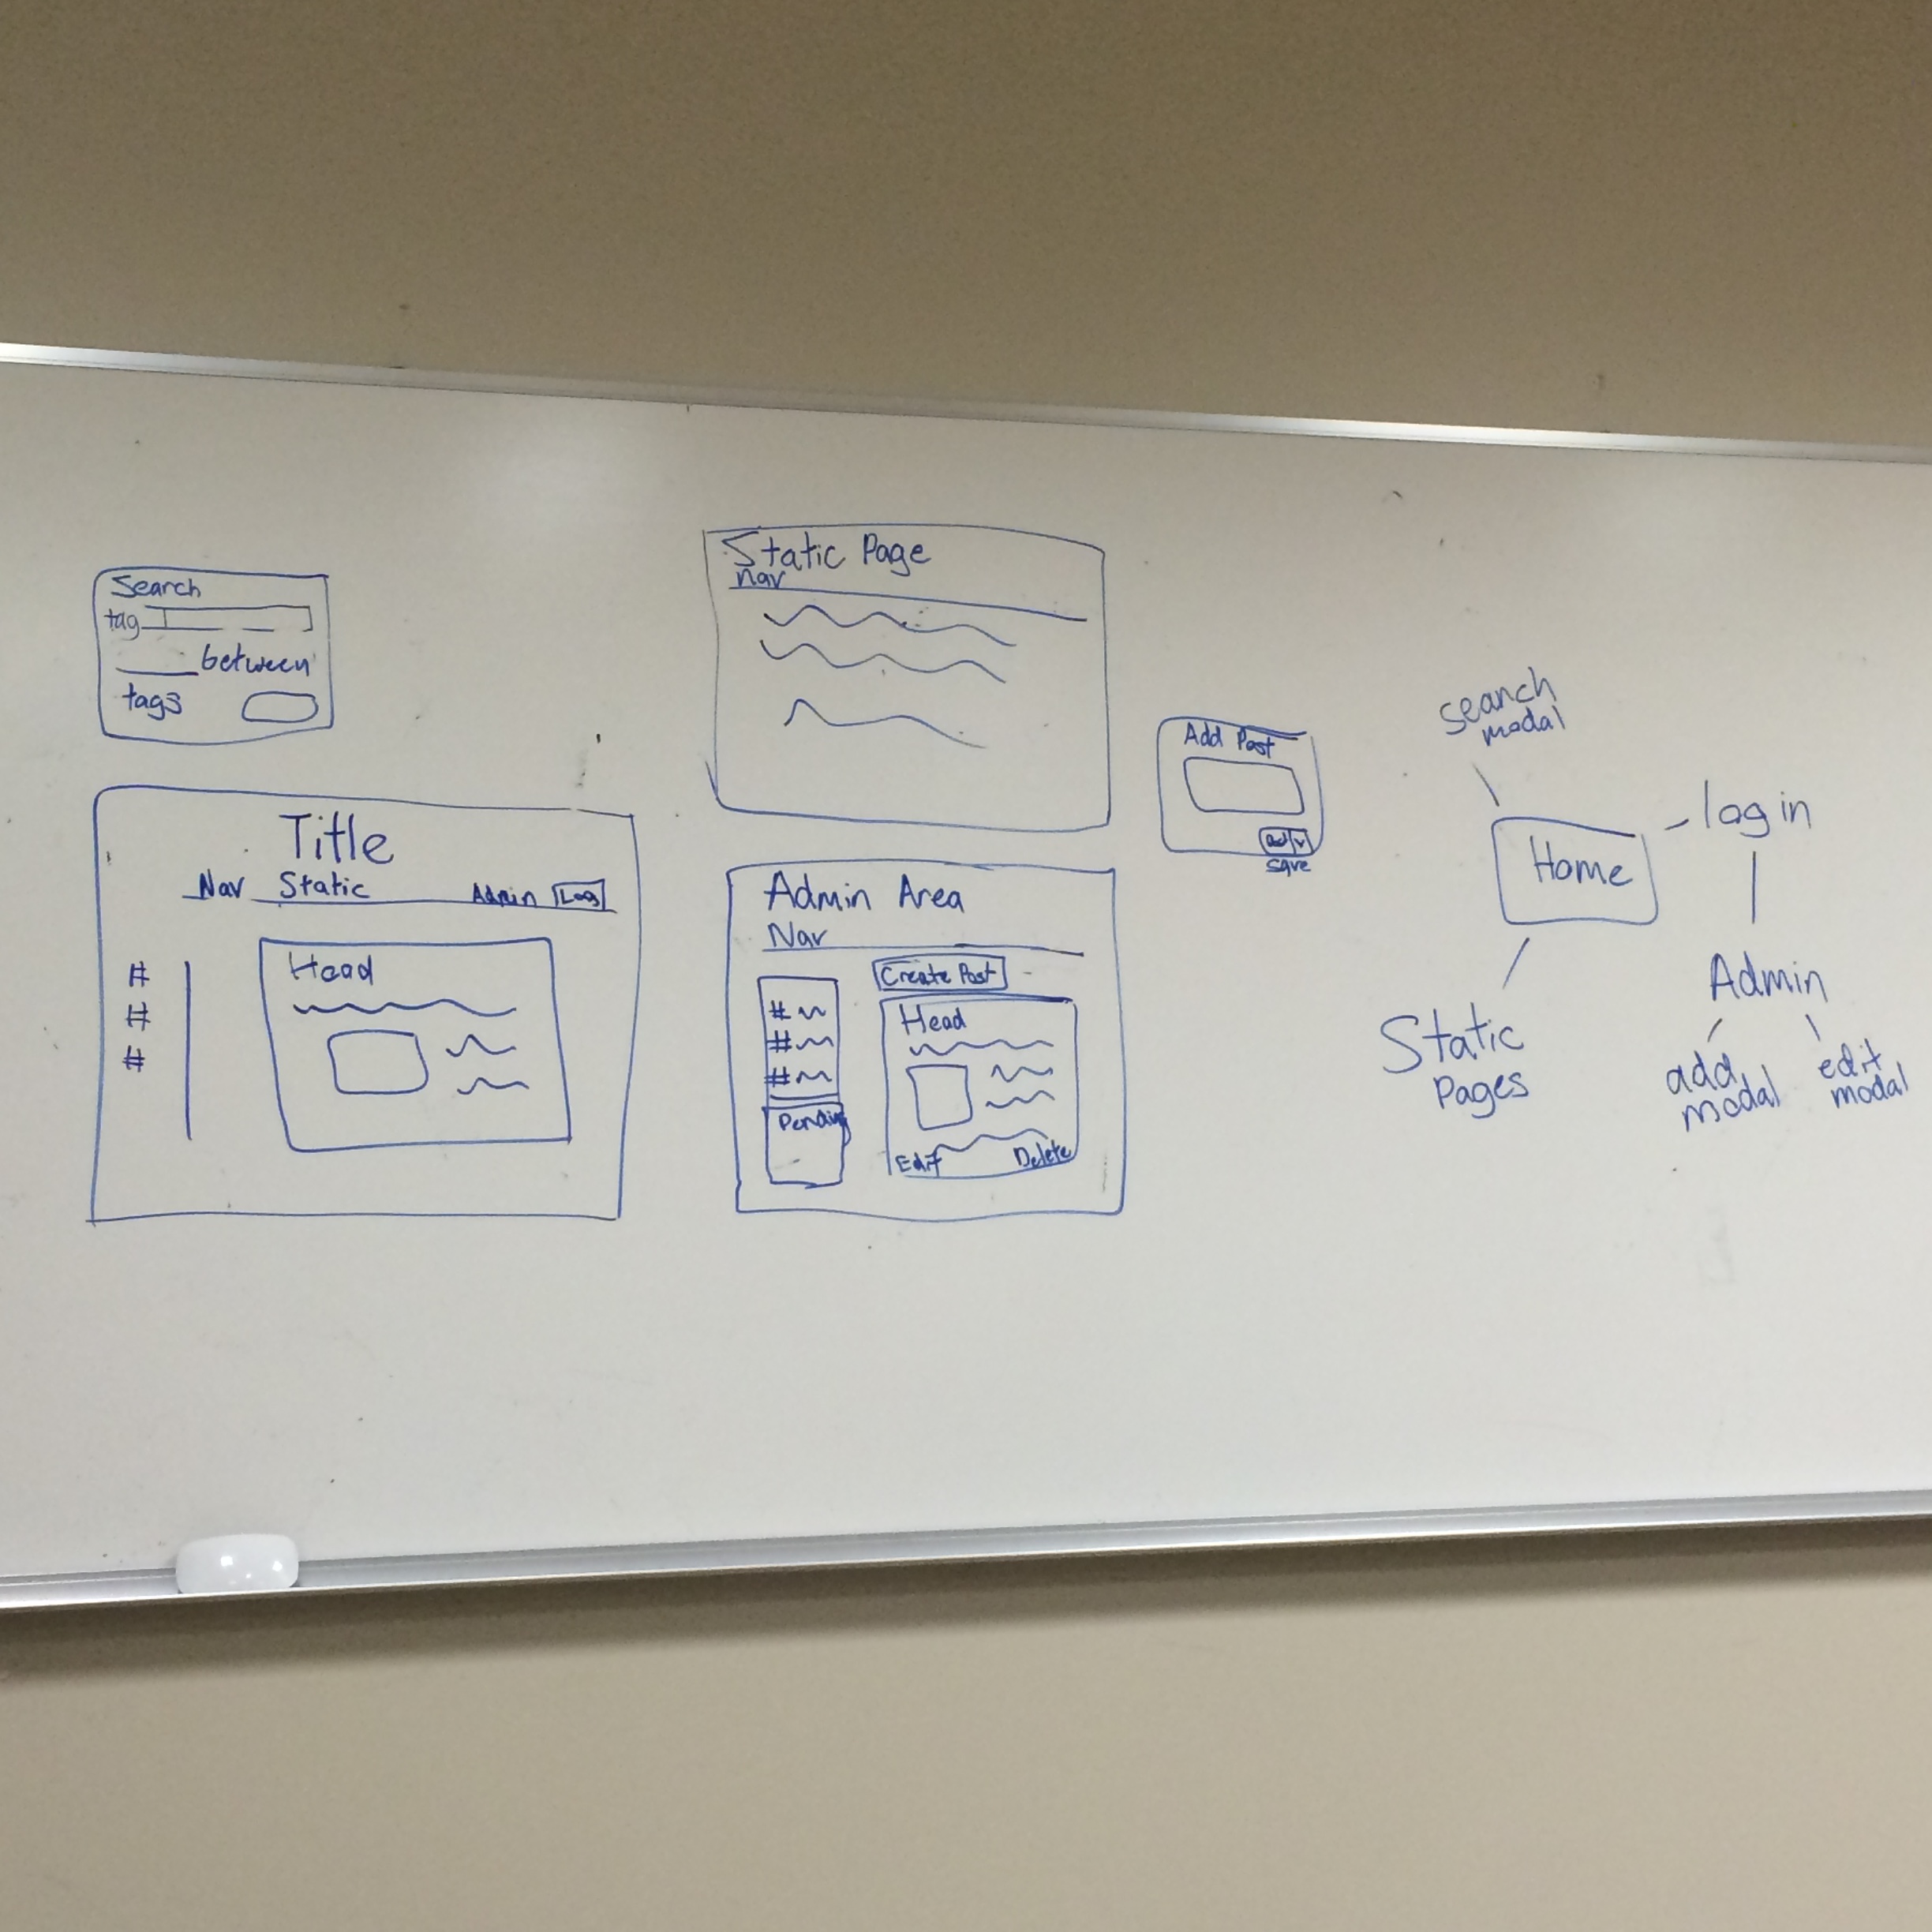 Search
tag
between
tags
Title
Nav Static Admin Log
#
#
#
Head
Static Page
nav
Admin Area
Nav
Create Post
#
#
#
Pending
Head
Edit Delete
Add Post
save
search
modal
Home
log in
Static
Pages
Admin
add
modal
edit
modal